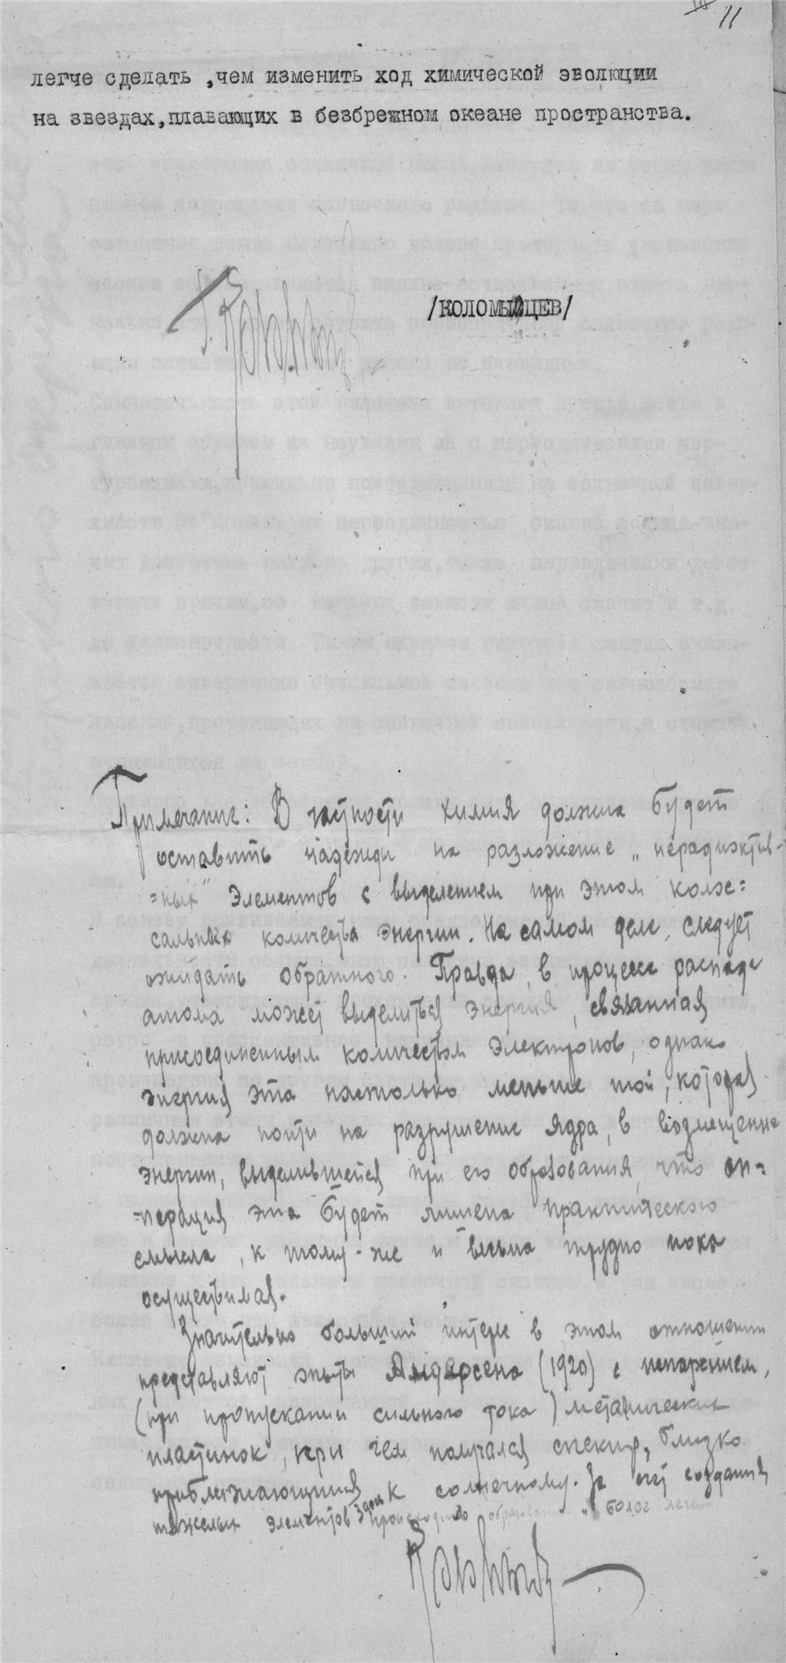 11
легче сделать ,чем изменить ход химической эволюции
на звездах,плавающих в безбрежном океане пространства.
/КОЛОМЫЙЦЕВ/
Примечание: В частности химия должна будет
оставить надежды на разложение „нерадиоктив-
=ных" элементов с выделением при этом колос=
сальных количества энергии. На самом деле, следует
ожидать обратного. Правда, в процессе распада
атома может выделиться энергия, связанная
присоединенным количеством электронов, однако
энергия эта настолько меньше той, которая
должна пойти на разрушение ядра, в возмещение
энергии, выделившейся при его образования, что оп=
=перация эта будет лишена практического
смысла, к тому-же и весьма трудно пока
осуществимая.
Значительно больший интерес в этом отношении
представляют опыты Андерсена (1920) с испарением,
(при пропускании сильного тока) металических
пластинок, при чем получался спектр, близко
приближающийся к солнечному. За счет создания
тяжелых элементов здесь происходило образование и более легких